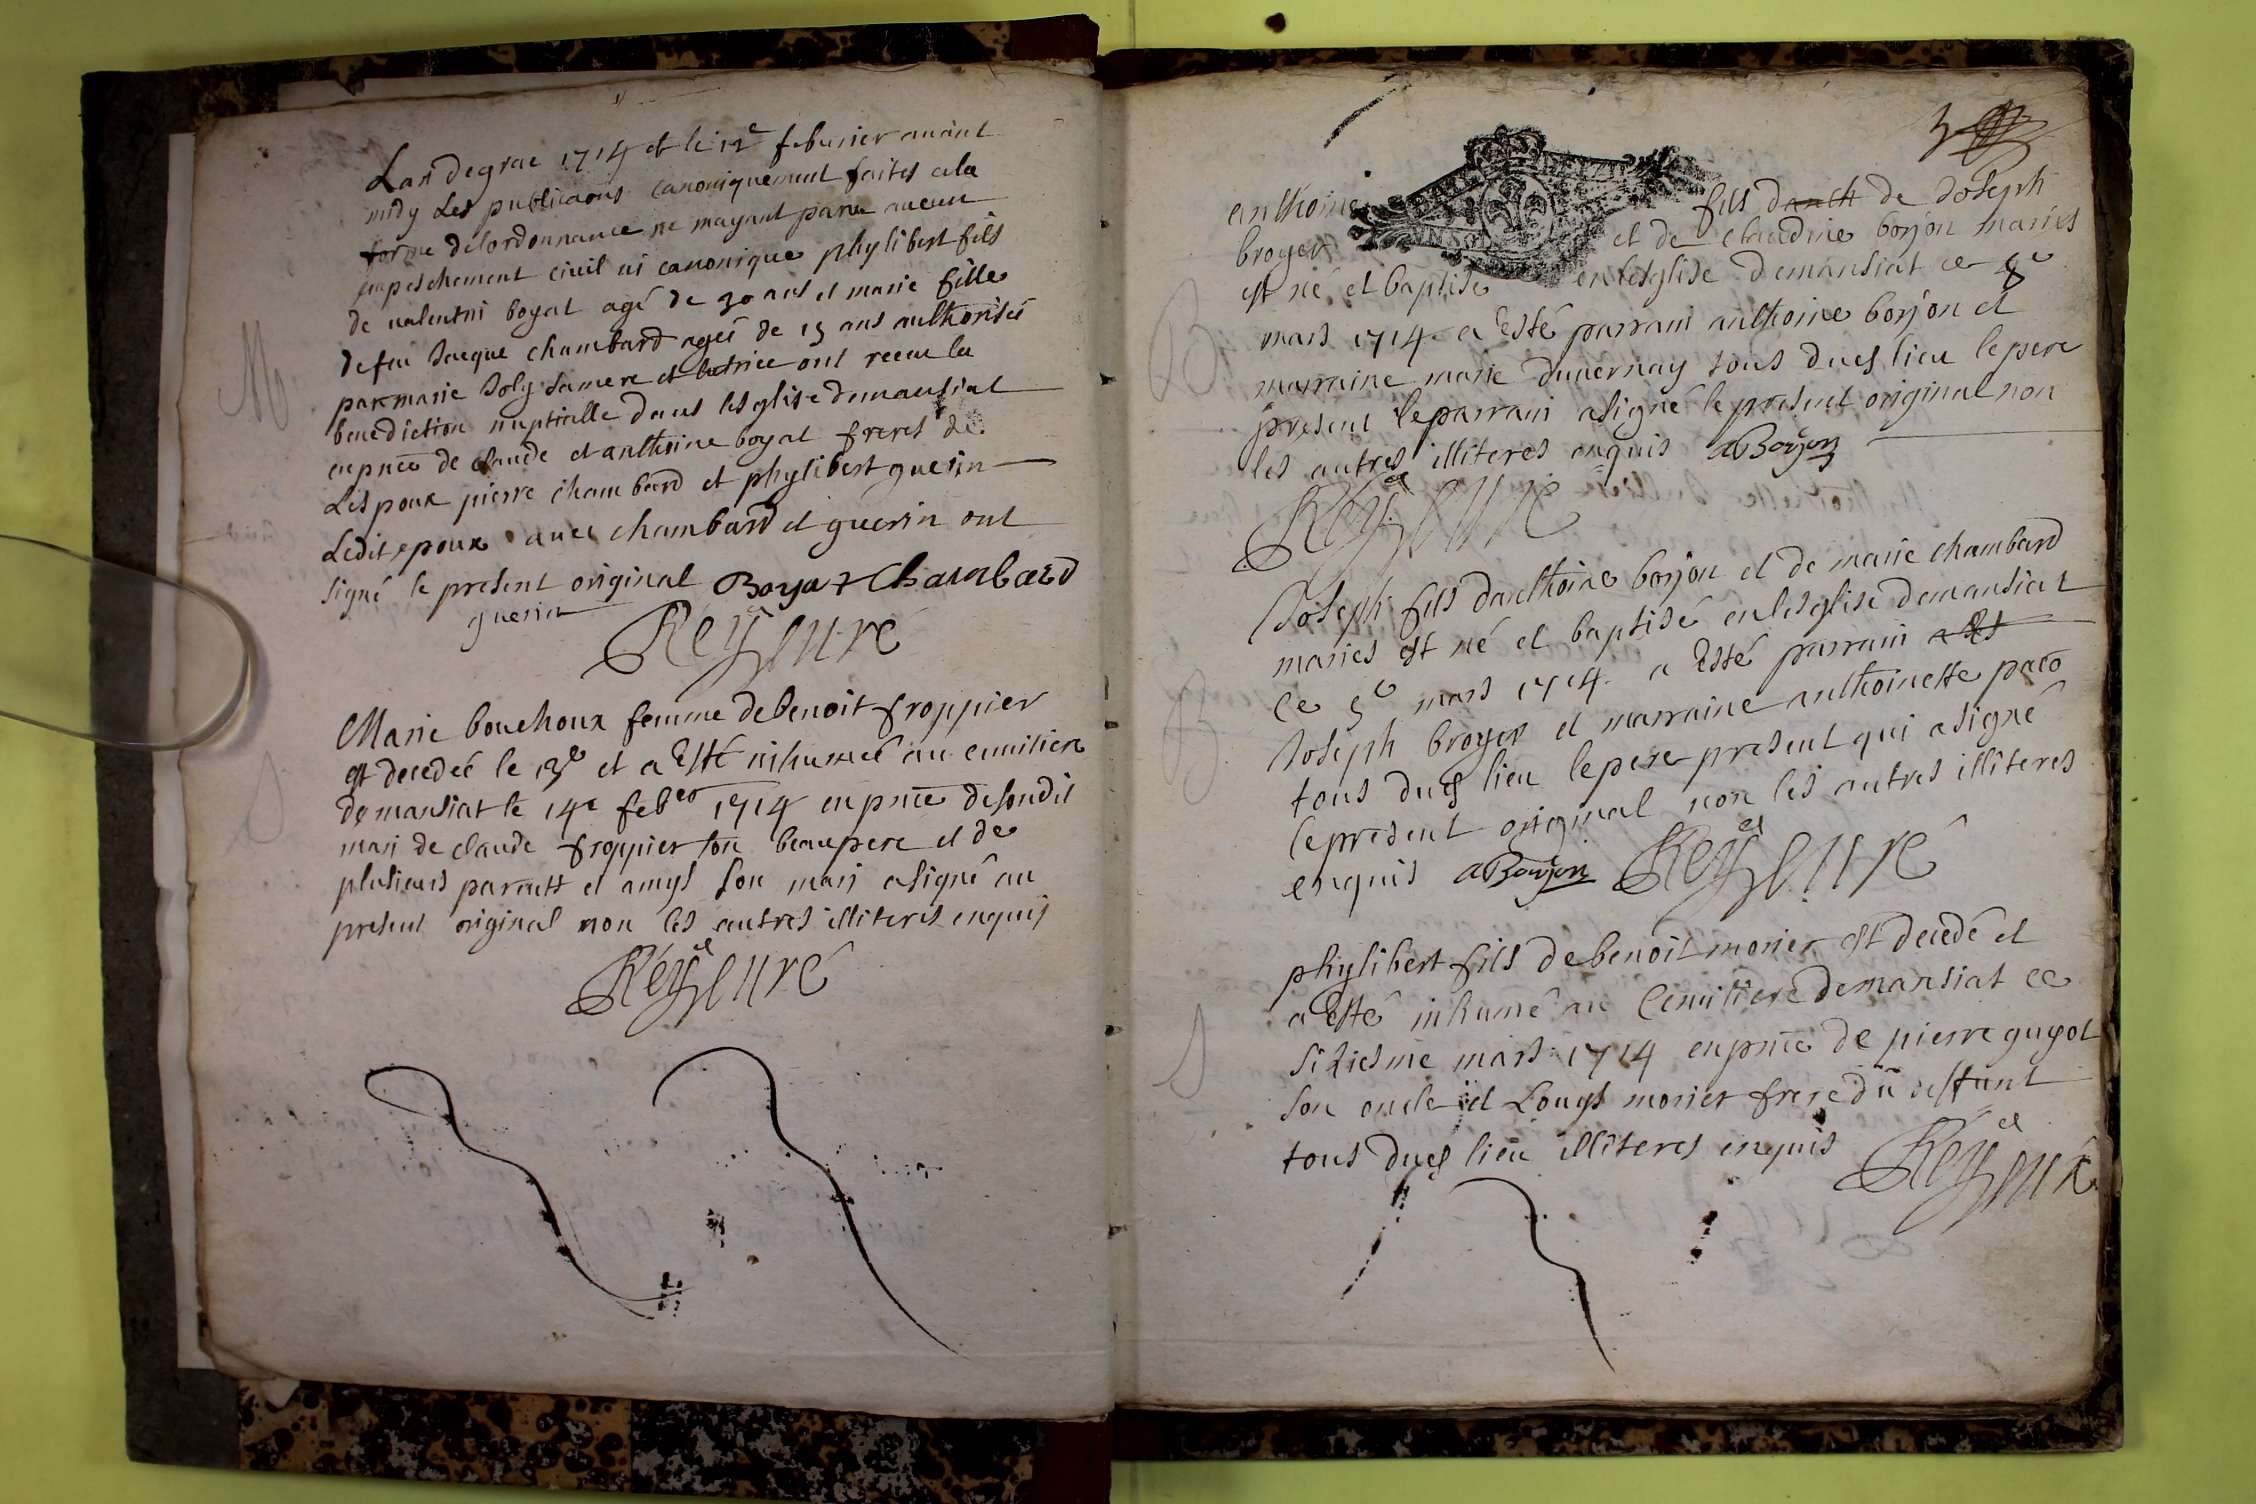 Lan de grace 1714 et le 12e februier auant
midy Les publicaons canoniquement faites a la
forme de lordonnance ne mayant paru aucun
empeschement ciuil ni canonique phylibert fils
de ualentin boyat agé de 30 ans et marie fille
de feu Jacque chambard ageé de 15 ans authoriseé
par marie Joly sa mere et tutrice ont receu la
benediction nuptialle dans lesglise demansiat
en pnce de claude et anthoine boyat freres de
Lespoux pierre chambard et phylibert guerin
Ledit epoux auec chambard et guerin ont
signé le present original Boyat Chambard
guerin
Rey curé
M
Marie bouchoux femme de benoit froppier
est decedeé le 13e et a Esté inhumeé au cemitiere
de mansiat le 14e febro 1714 en pnce de sondit
mari de claude froppier son beaupere et de
plusieurs parentt et amys son mari a signé au
present original non les autres illiteres enquis
Rey curé
S
3
anthoine fils danth de Joseph
broyer et de claudine borjon mariés
est né et baptisé en lesglise demansiat ce 4e
mars 1714 a Esté parrain anthoine borjon et
marraine marie duuernay tous dud lieu le pere
present le parrain a signé le present original non
les autres illiteres enquis aBorjon
Rey curé
B
Joseph fils danthoine borjon et de marie chambard
mariés est né et baptisé en lesglise demansiat
ce 5e mars 1714 a Esté parrain a Est
Joseph broyer et marraine anthoinette paco
tous dud lieu le pere present qui a signé
le present original non les autres illiteres
enquis aBorjon Rey curé
B
phylibert fils de benoit morier est decedé et
a Esté inhumé au Cemitiere demansiat ce
siziesme mars 1714 en pnce de pierre guyot
son oncle et Louys morier frere du deffunt
tous dud lieu illiteres enquis Rey curé
S